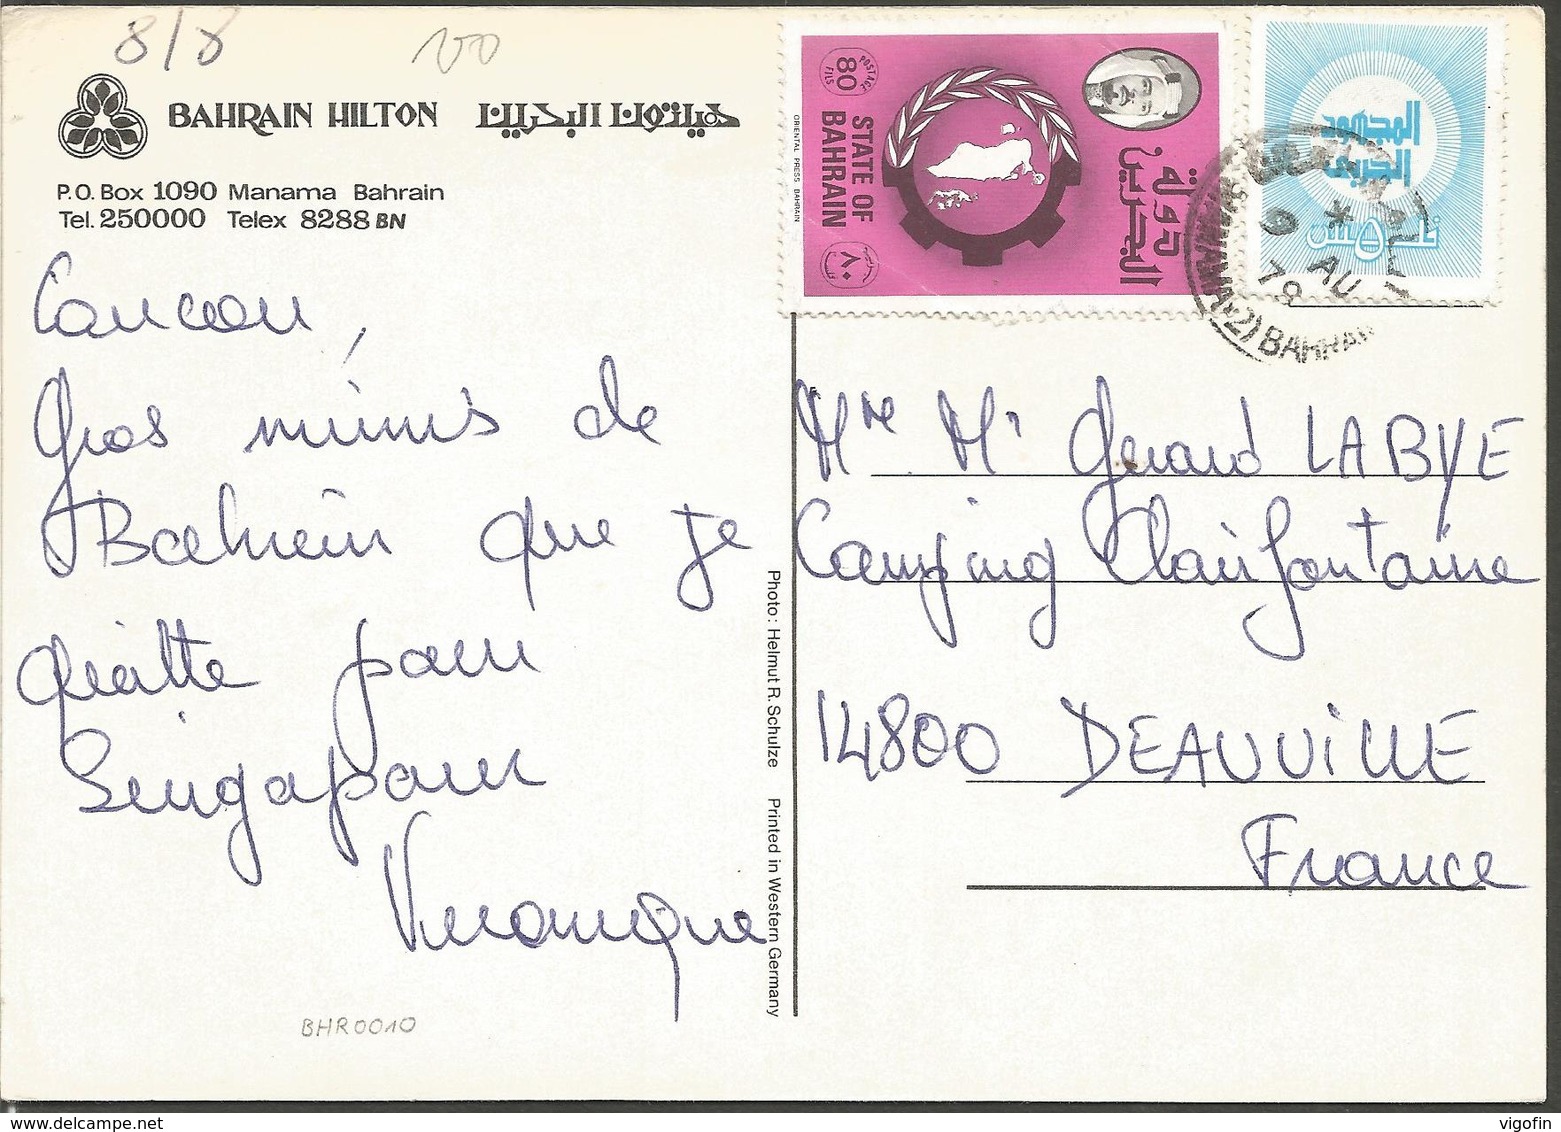 8/8
100
BAHRAIN HILTON هيلتون البحرين
P.O. Box 1090 Manama Bahrain
Tel. 250000 Telex 8288 BN
Coucou,
Gros mimis de
Bahrein que je
quitte pour
Singapour
Veronique
BHR0010
Photo: Helmut R. Schulze Printed in Western Germany
POSTAGE
80
FILS
STATE OF
BAHRAIN
دولة
البحرين
٨٠
ORIENTAL PRESS BAHRAIN
المجهود
الحربي
فلس
9
AU
79
MANAMA (2) BAHRAIN
Mme Mr Gerard LABYE
Camping Clairfontaine
14800 DEAUVILLE
France
vigofin